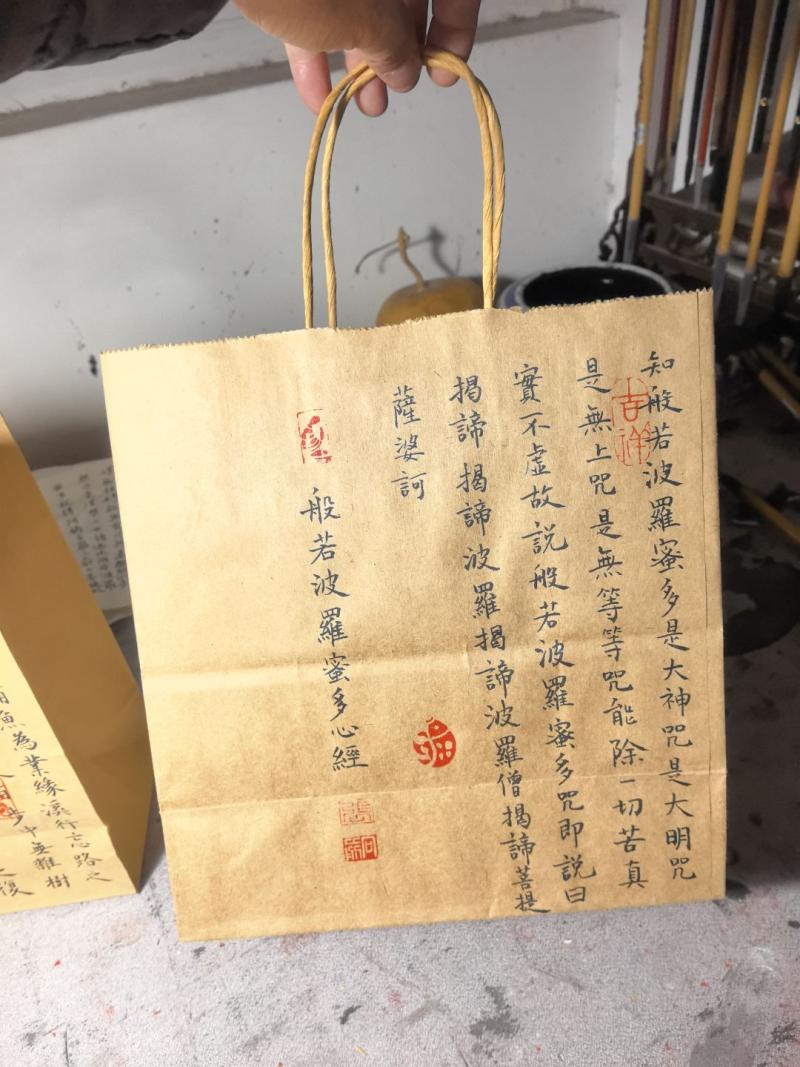 知般若波羅蜜多是大神咒是大明咒
是無上咒是無等等咒能除一切苦真
實不虛故説般若波羅蜜多咒即説曰
揭諦揭諦波羅揭諦波羅僧揭諦菩提
薩婆訶
般若波羅蜜多心經
吉祥
張
魚為業緣溪行忘路之
步中無雜樹
復